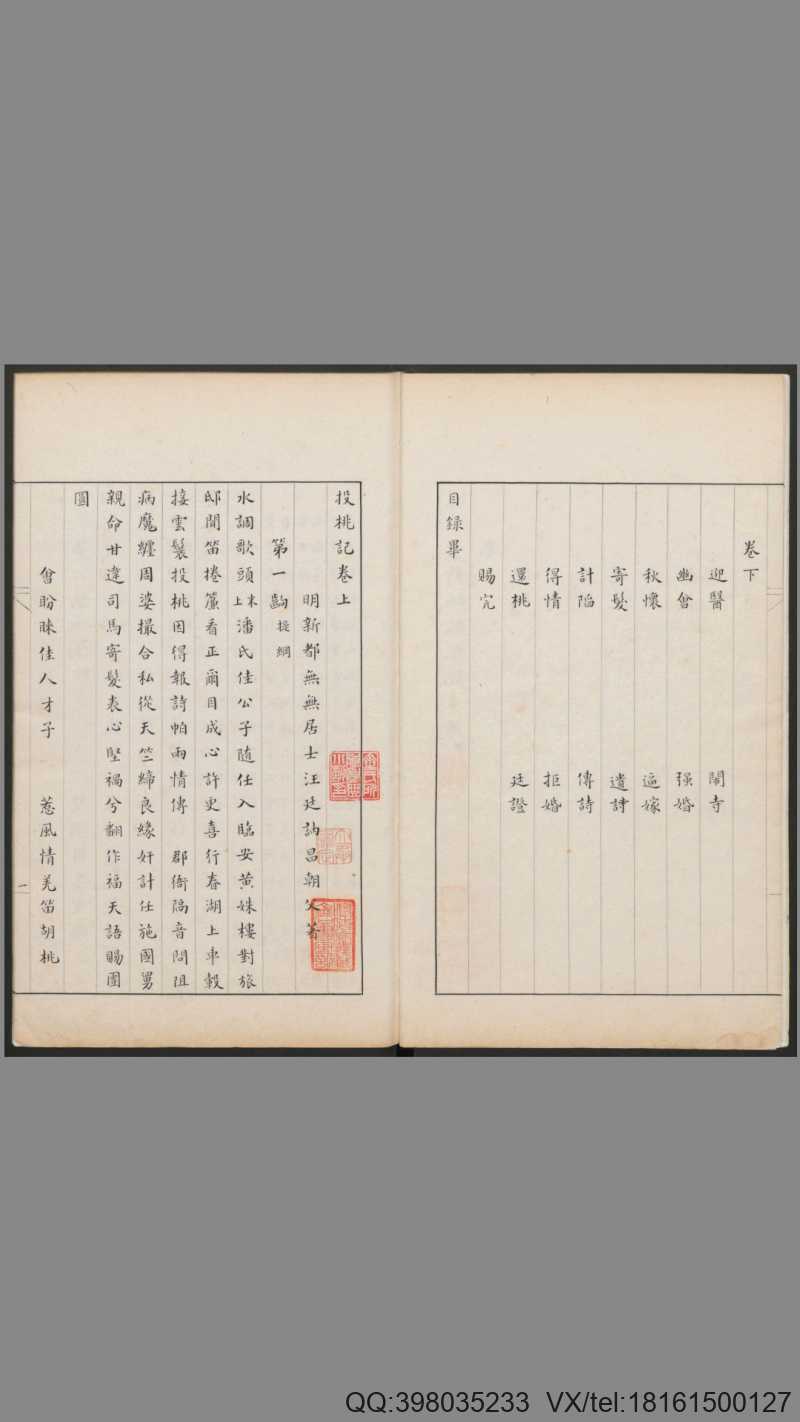 卷下
迎醫 鬧寺
幽會 强婚
秋懷 逼嫁
寄髮 遺詩
計陷 傳詩
得情 拒婚
還桃 廷證
賜完
目錄畢
投桃記卷上
明新都無無居士汪廷訥昌朝父著
第一齣 提綱
水調歌頭 末上 潘氏佳公子隨任入臨安黃姝樓對旅
邸聞笛捲簾看正爾目成心許更喜行春湖上車轂
接雲鬟投桃因得報詩帕兩情傳 郡衙隔音問阻
病魔纏周婆撮合私從天竺締良緣奸計任施國舅
親命甘違司馬寄髮表心堅禍兮翻作福天語賜團
圓
曾盼睞佳人才子 惹風情羌笛胡桃
一
QQ:398035233 VX/tel:18161500127